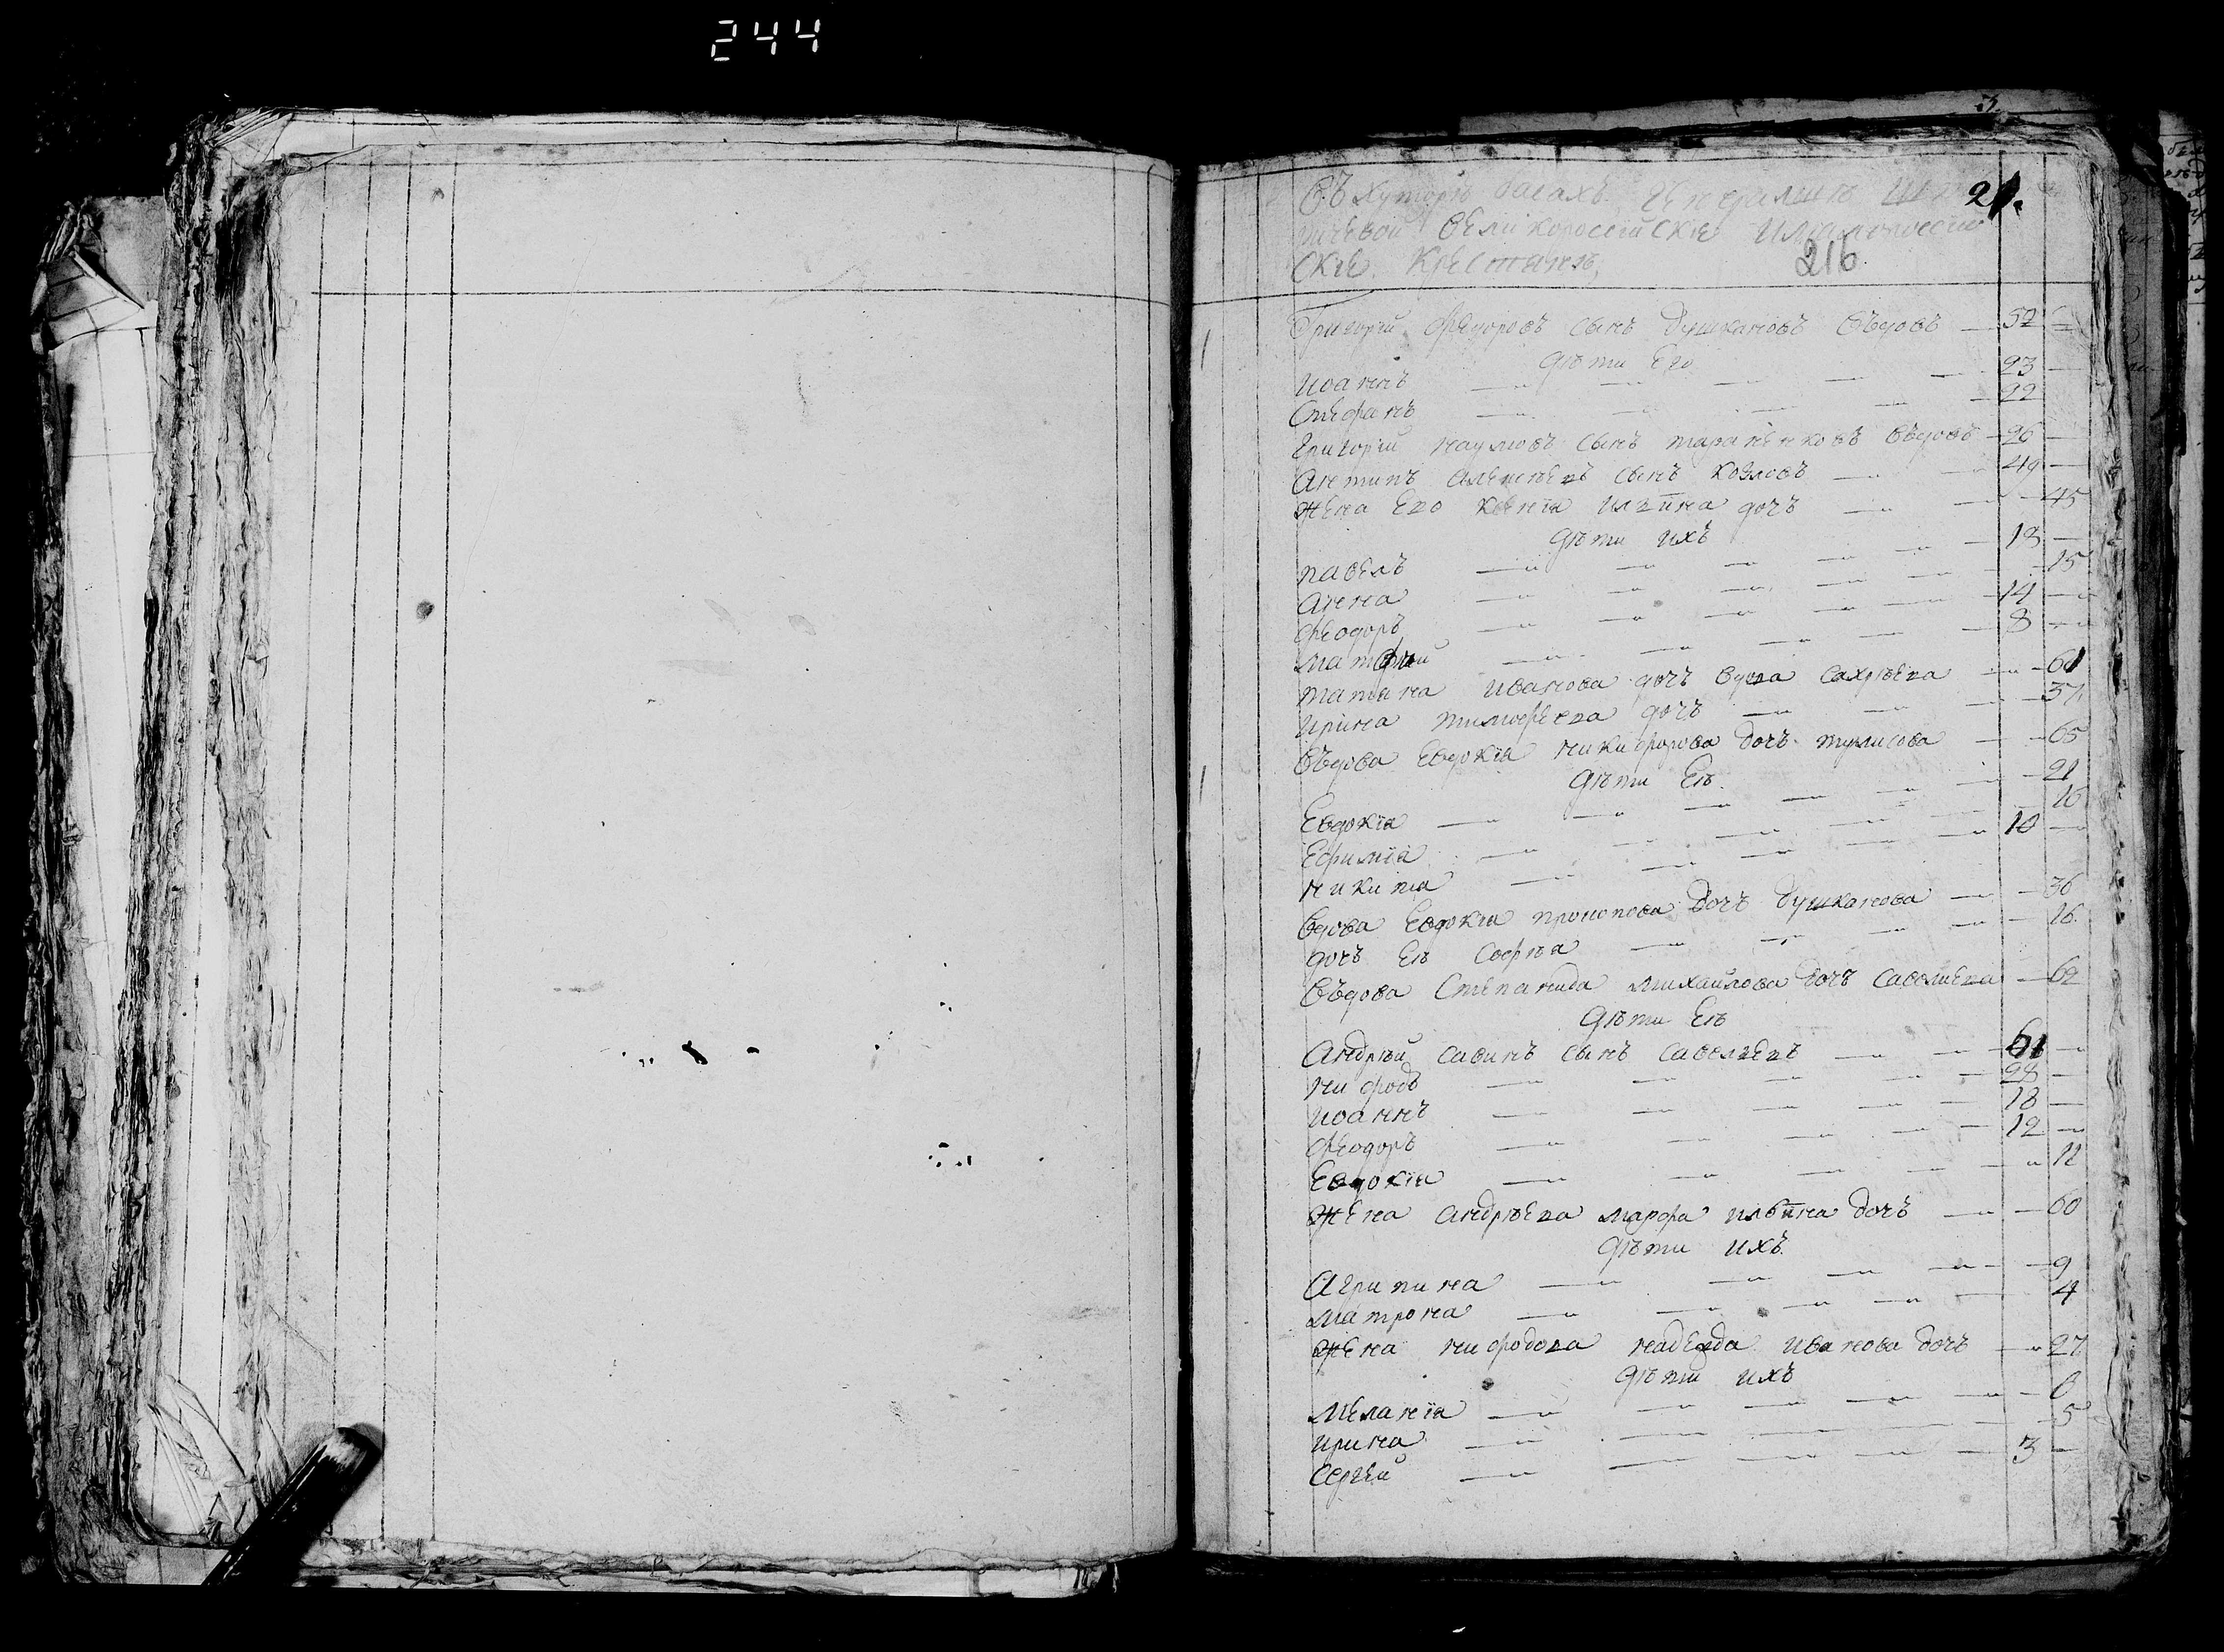 244
21.
Въ хуторѣ
великоросейские
ские крестяне,
216
Григорий Федоровъ сынъ Душкановъ въдовъ — 52 —
дѣти Его
Иоаннъ — 23 —
Стефанъ — 22 —
Григорий Наумовъ сынъ Тараненковъ въдовъ — 26 —
Антипъ Алексѣевъ сынъ Козловъ — 49 —
Жена Его Ксения Ильина дочъ — 45
дѣти ихъ
Павелъ — 18 —
Анна — 15
Феодоръ — 14 —
Матфий — 8 —
Татяна Иванова дочъ — 61
Ирина Тимофеева дочъ — 37
Въдова Евдокия Никифорова дочъ — 65
дѣти Еѣ
Евдокия — 21
Ефимия — 16
Никита — 10 —
Вдова Евдокия Прокопова дочъ Душканова — 36
дочъ Еѣ Софья — 16
Въдова Степанида Михайлова дочъ Савелиева — 62
дѣти Еѣ
Андрѣй Савинъ сынъ Савельевъ — 61 —
Нифодъ — 28 —
Иоаннъ — 18 —
Феодоръ — 12 —
Евдокия — 11
Жена Андрѣева Марфа Ильина дочъ — 60
дѣти ихъ
Агрипина — 9
Матрона — 4
Жена Нифодова Надежда Иванова дочъ — 27
дѣти ихъ
Мелания — 6
Ирина — 5
Сергей — 3 —